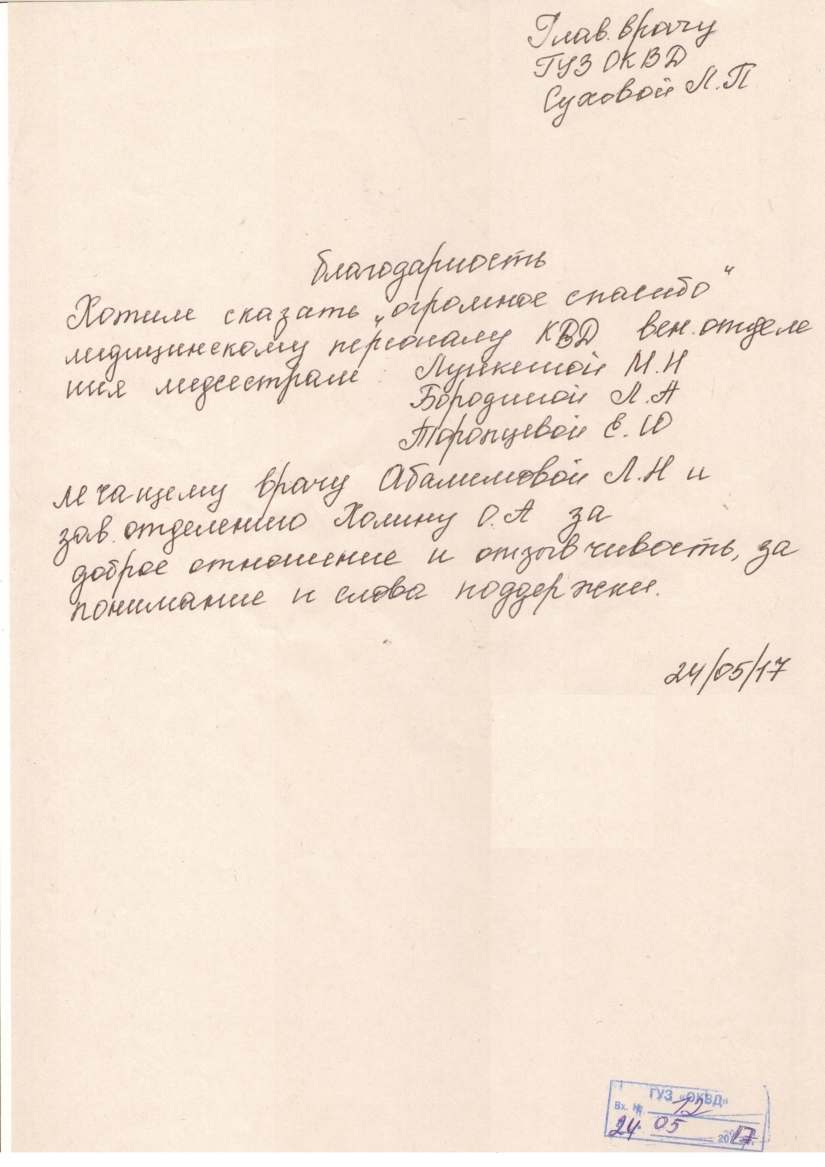 Глав. врачу
ГУЗ ОКВД
Суховой Л.П
благодарность
Хотим сказать „огромное спасибо"
медицинскому персоналу КВД вен. отделе
ния медсестрам: М.Н
Бородиной Л.А
Торопцевой Е.Ю
лечащему врачу Абалимовой Л.Н и
зав. отделению Холину О.А за
доброе отношение и отзывчивость, за
понимание и слова поддержки.
24/05/17
ГУЗ «ОКВД»
Вх. № 12
24 05 2017г.